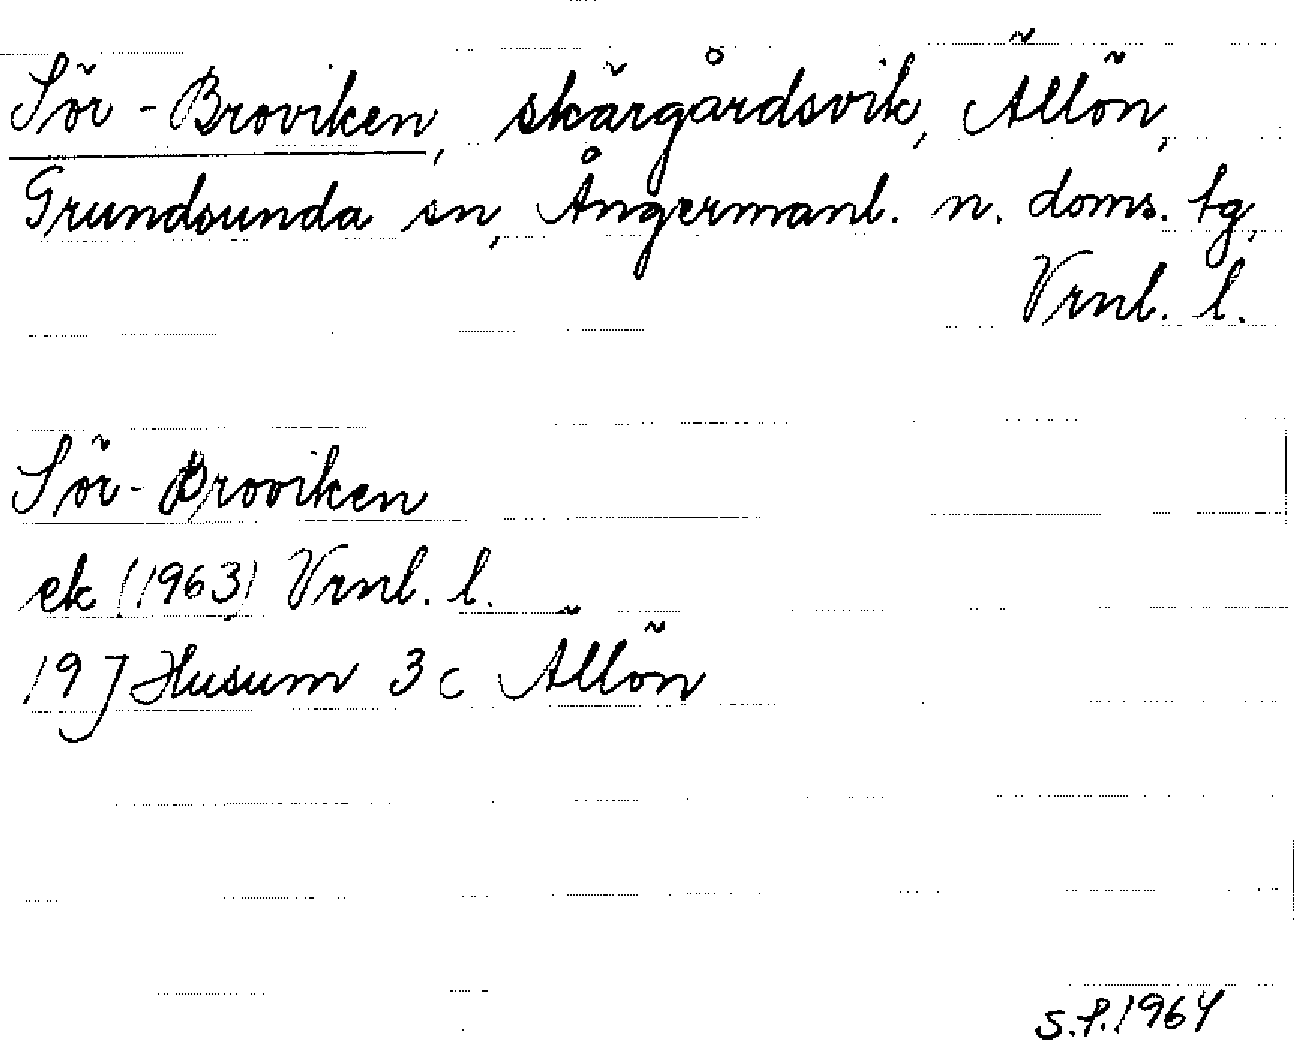 Sör-Broviken, skärgårdsvik, Ällön,
Grundsunda sn, Ångermanl. n. doms. tg,
Vrnl. l.
Sör-Broviken
ek (1963) Vrnl. l.
19J Husum 3c Ällön
S.f. 1964